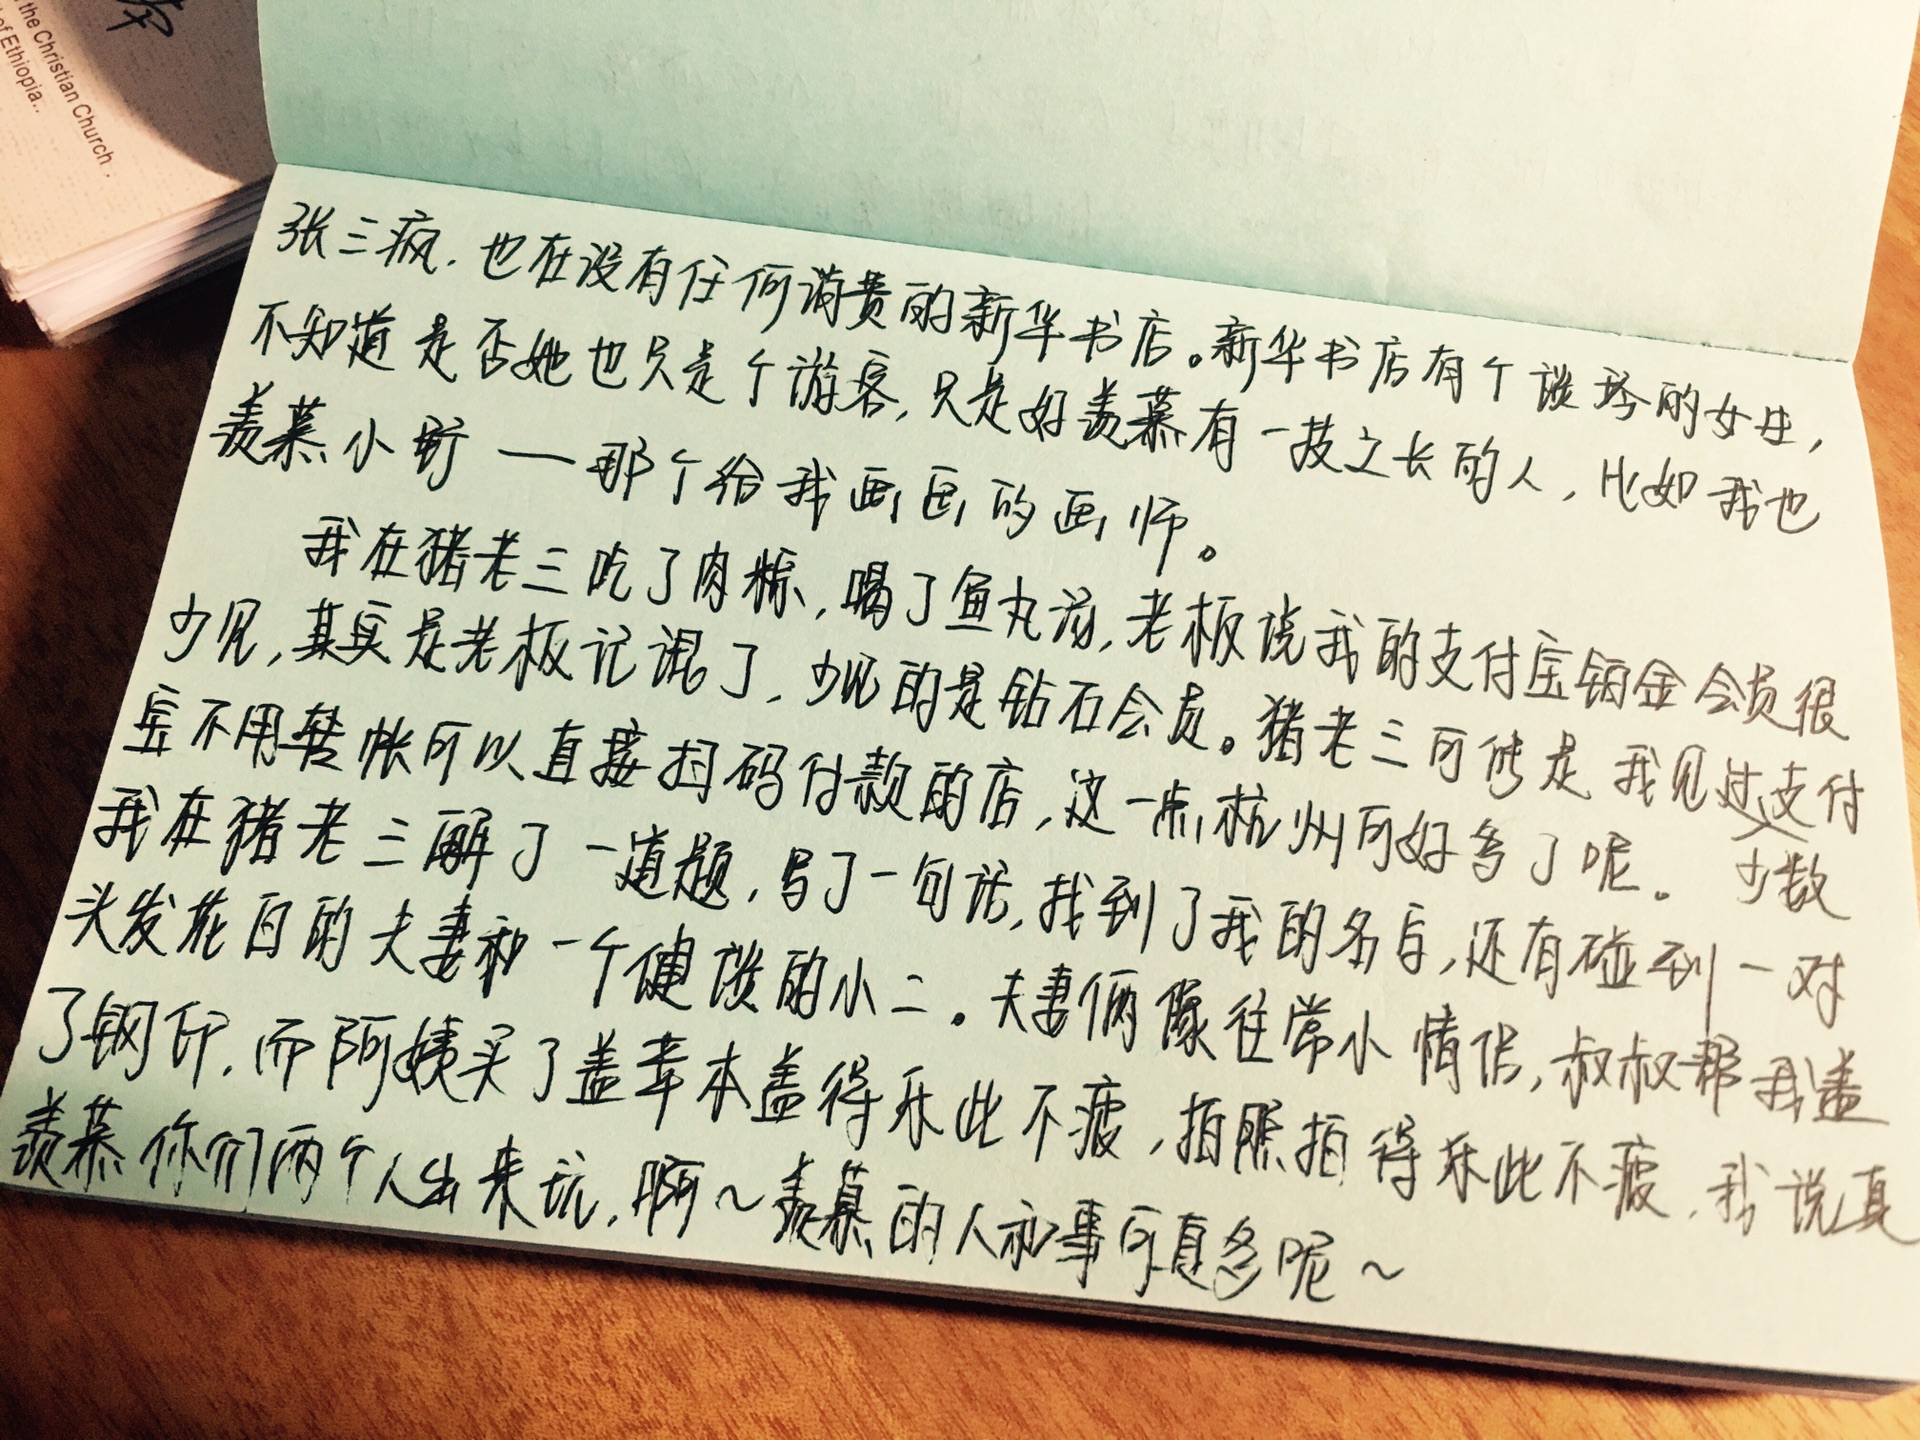 the Christian Church.
of Ethiopia..
张三疯.也在没有任何消费的新华书店。新华书店有个谈琴的女生,
不知道是否她也只是个游客,只是好羡慕有一技之长的人,比如我也
羡慕小野——那个给我画画的画师。
我在猪老三吃了肉粽,喝了鱼丸汤,老板说我的支付宝铂金会员很
少见,其实是老板记混了,少见的是钻石会员。猪老三可能是我见过支付
少数
宝不用转帐可以直接扫码付款的店,这一点杭州可好多了呢。
我在猪老三解了一道题,写了一句话,找到了我的名字,还有碰到一对
头发花白的夫妻和一个健谈的小二。夫妻俩像往常小情侣,叔叔帮我盖
了钢印.而阿姨买了盖章本盖得乐此不疲,拍照拍得乐此不疲.我说真
羡慕你们两个人出来玩.啊~羡慕的人和事可真多呢~